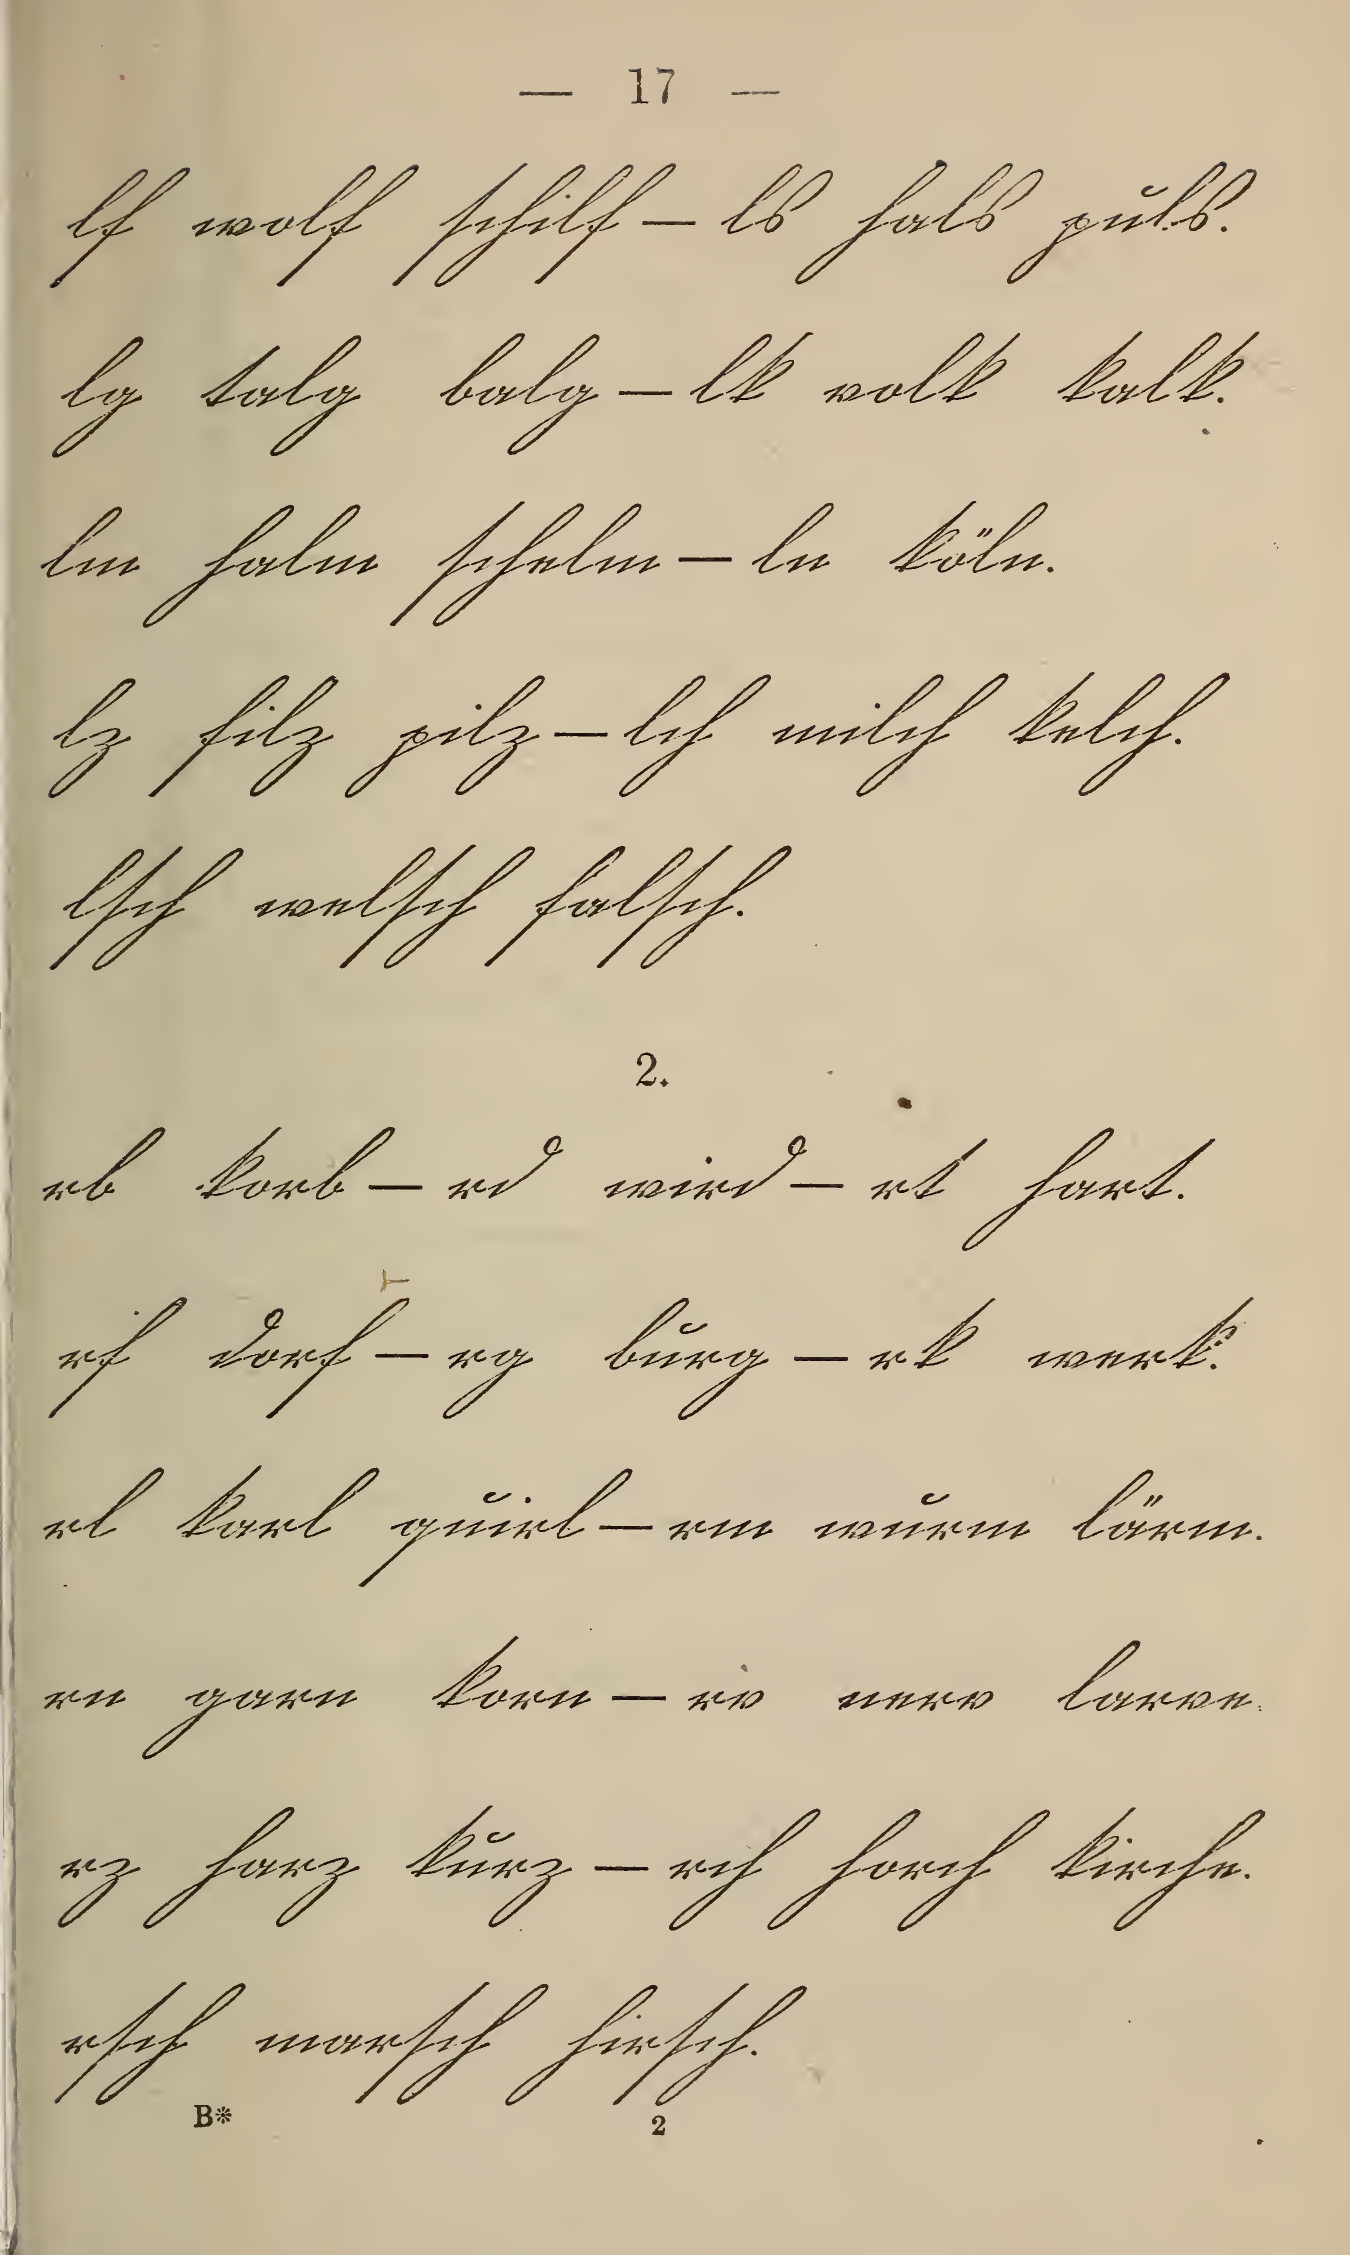 — 17 —
lf wolf schilf — ls hals puls.
lg talg balg — lk volk kalk.
lm halm schelm — ln köln.
lz filz pilz — lch milch kelch.
lsch welsch falsch.
2.
rb korb — rd wird — rt hart.
rf dorf — rg burg — rk werk.
rl karl quirl — rm wurm lärm.
rn garn korn — rv nerv larve.
rz harz kurz — rch horch kirche.
rsch marsch hirsch.
B* 2